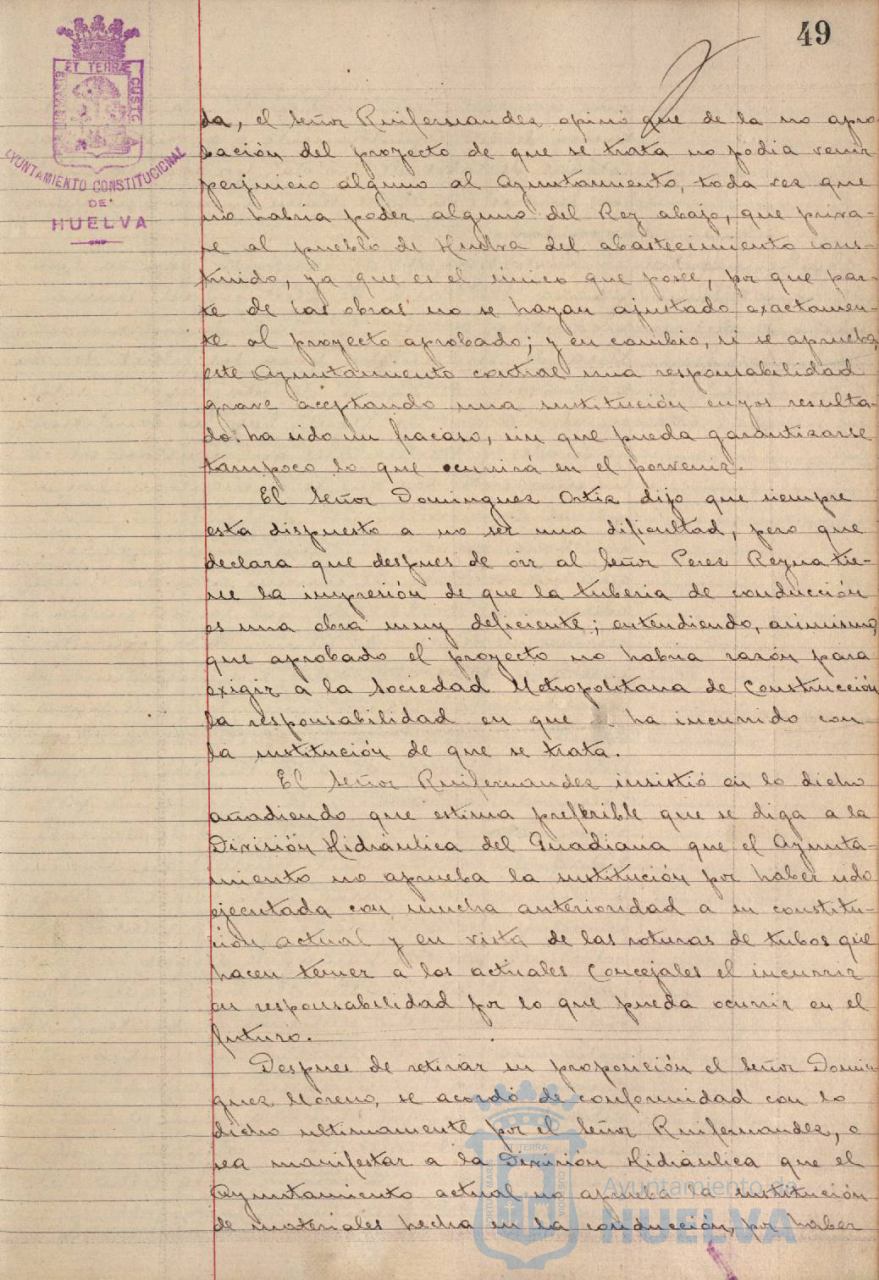 49
ET TERRÆ
CUSTO
AYUNTAMIENTO CONSTITUCIONAL
DE
HUELVA
da, el Señor Ruifernandez opinó que de la no apro-
bación del proyecto de que se trata no podia venir
perjuicio alguno al Ayuntamiento, toda vez que
no habria poder alguno del Rey abajo, que priva-
se al pueblo de Huelva del abastecimiento cons-
truido, ya que es el único que posee, por que par-
te de las obras no se hayan ajustado exactamen-
te al proyecto aprobado; y en cambio, si se aprueba,
este Ayuntamiento contrae una responsabilidad
grave aceptando una sustitución cuyos resulta-
do: ha sido un fracaso, sin que pueda garantizarse
tampoco lo que ocurrirá en el porvenir.
El Señor Dominguez Ortiz dijo que siempre
esta dispuesto a no ser una dificultad, pero que
declara que despues de oir al Señor Perez Reyna tie-
ne la impresión de que la tuberia de conducción
es una obra muy deficiente; entendiendo, asimismo,
que aprobado el proyecto no habria razón para
exigir á la Sociedad Metropolitana de Construcción
la responsabilidad en que ha incurrido con
la sustitución de que se trata.
El Señor Ruifernandez insistió en lo dicho
añadiendo que estima preferible que se diga a la
División Hidráulica del Guadiana que el Ayunta-
miento no aprueba la sustitución por haber sido
ejecutada con mucha anterioridad a su constitu-
ción actual y en vista de las roturas de tubos que
hacen temer a los actuales Concejales el incurrir
en responsabilidad por lo que pueda ocurrir en el
futuro.
Despues de retirar su proposición el Señor Domin-
guez Moreno, se acordó de conformidad con lo
dicho ultimamente por el Señor Ruifernandez, o
sea manifestar a la División Hidráulica que el
Ayuntamiento actual no aprueba la sustitución
de materiales hecha en la conducción, por haber
Ayuntamiento de
HUELVA